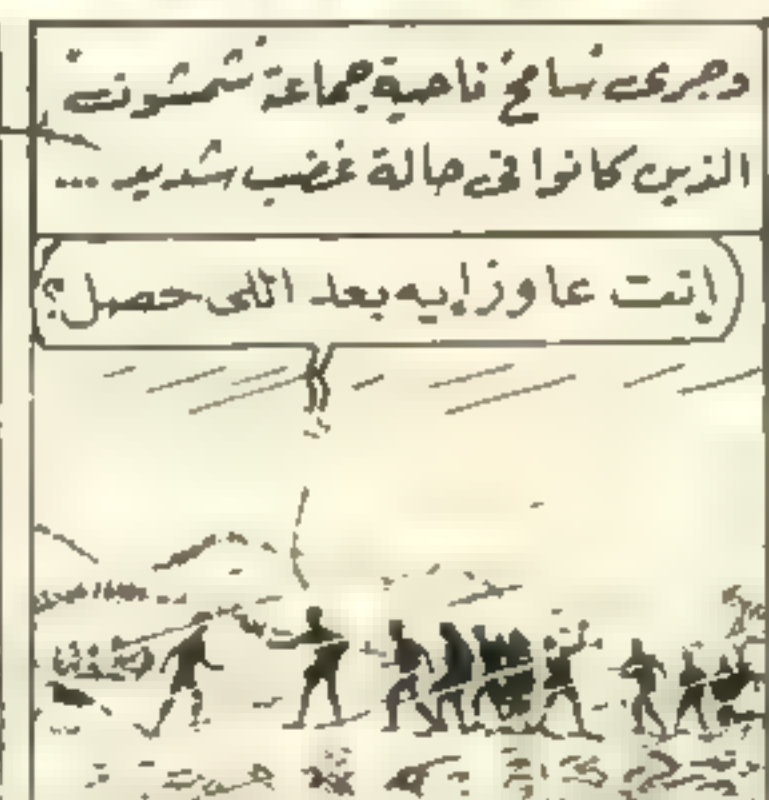 وجرى "سامح" ناحية جماعة "شمشون"
الذين كانوا فى حالة غضب شديد ...
إنت عاوز إيه بعد اللى حصل؟